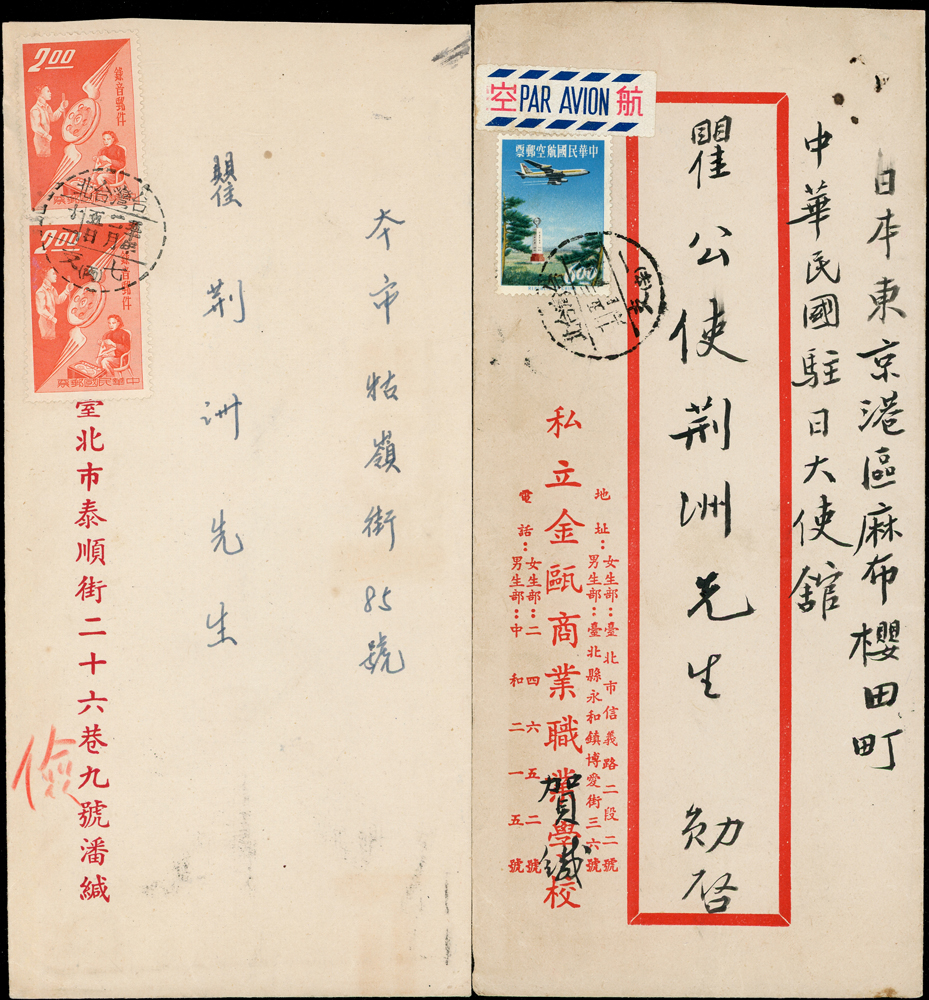 2.00
錄音郵件
2.00
錄音郵件
中華民國郵票
本市牯嶺街85號
瞿荆洲先生
臺北市泰順街二十六巷九號潘緘
儉
空 PAR AVION 航
中華民國航空郵票
日本東京港區麻布櫻田町
中華民國駐日大使館
瞿公使荆洲先生 勛啓
地址：女生部：臺北市信義路二段二號
男生部：臺北縣永和鎮博愛街三六號
私立金甌商業職業學校
賀緘
電話：女生部：二四六五二號
男生部：中和二一五號